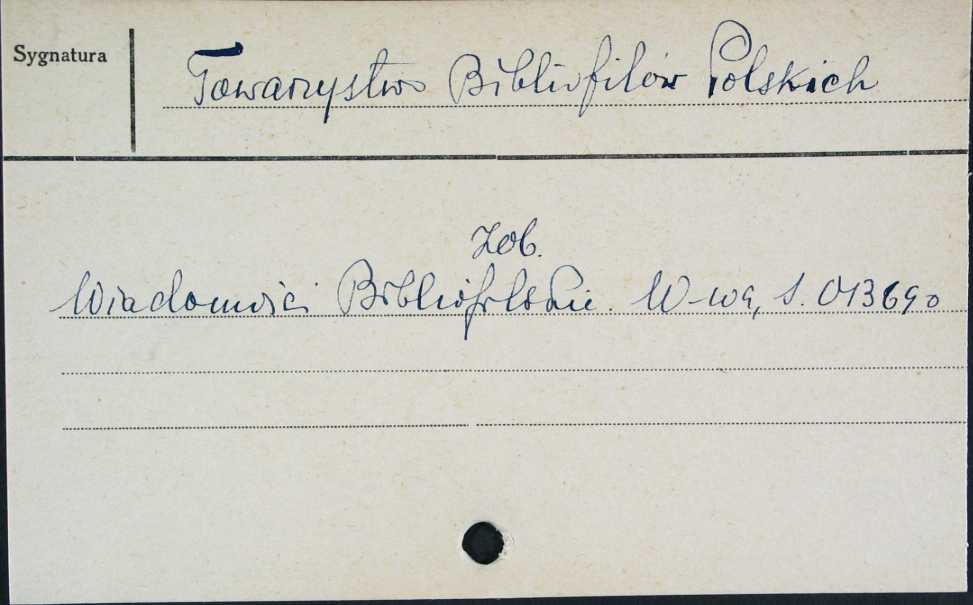 Sygnatura
Towarzystwo Bibliofilów Polskich
Zob.
Wiadomości Bibliofilskie. W-wa, S. 013690